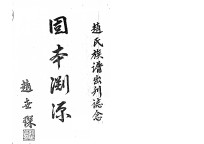 趙氏族譜出刊誌念
固本淵源
趙世琛